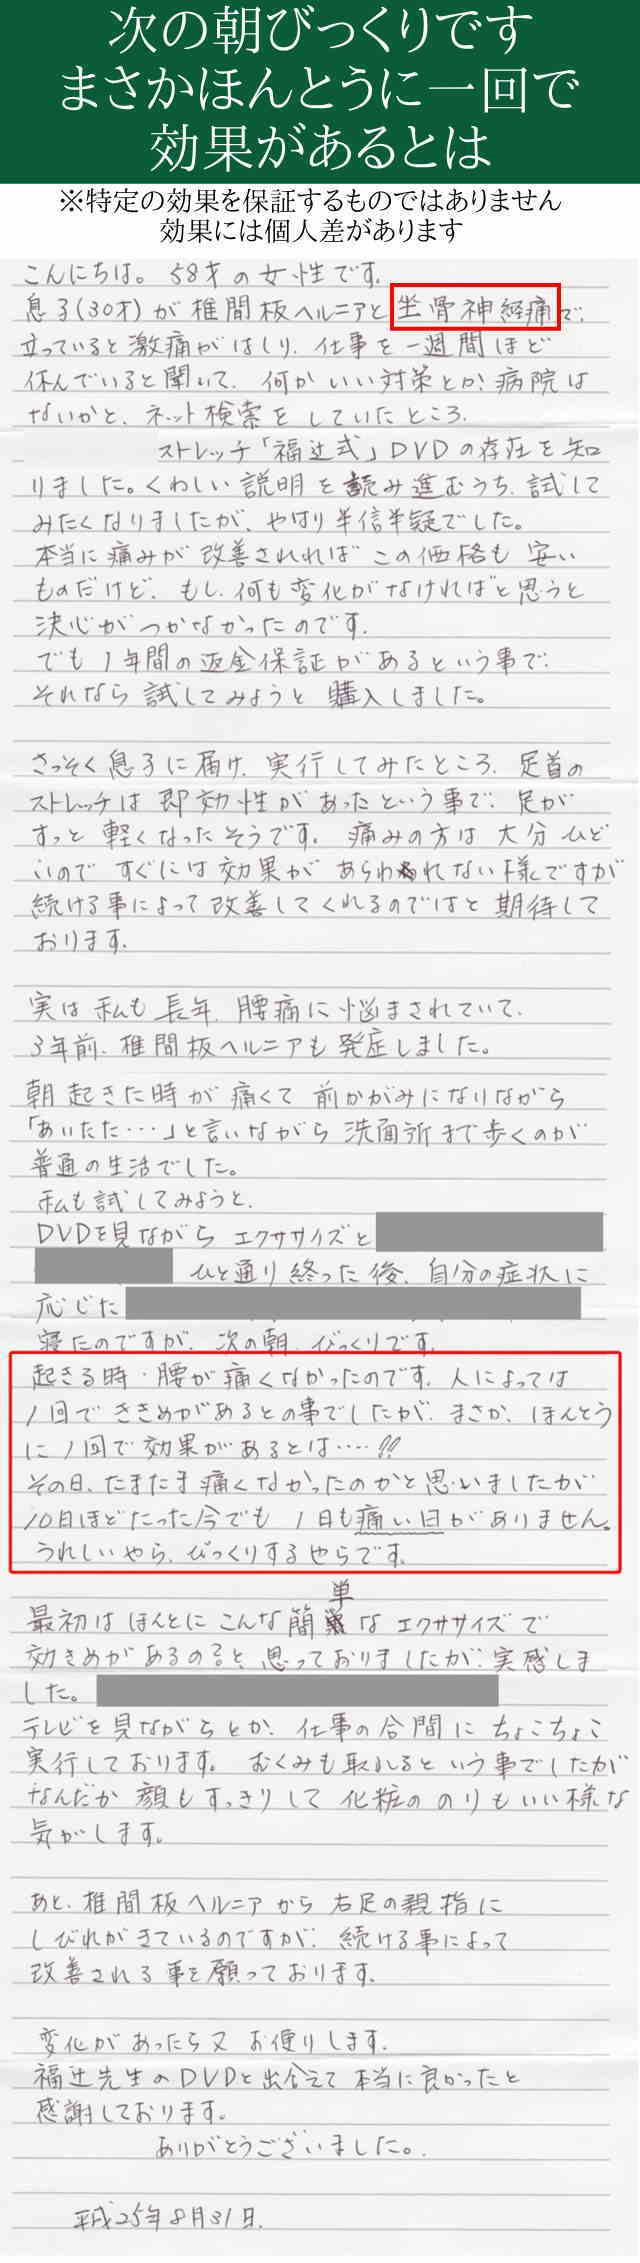 次の朝びっくりです
まさかほんとうに一回で
効果があるとは
※特定の効果を保証するものではありません
効果には個人差があります
こんにちは。58才の女性です。
息子(30才)が椎間板ヘルニアと坐骨神経痛で、
立っていると激痛がはしり、仕事を一週間ほど
休んでいると聞いて、何かいい対策とか、病院は
ないかと、ネット検索をしていたところ、
ストレッチ「福辻式」DVDの存在を知
りました。くわしい説明を読み進むうち、試して
みたくなりましたが、やはり半信半疑でした。
本当に痛みが改善されれば この価格も安い
ものだけど、もし、何も変化がなければと思うと
決心がつかなかったのです。
でも1年間の返金保証があるという事で、
それなら試してみようと購入しました。
さっそく息子に届け、実行してみたところ、足首の
ストレッチは即効性があったという事で、足が
すっと軽くなったそうです。痛みの方は大分ひど
いので すぐには効果が あらわれない様ですが
続ける事によって改善してくれるのではと期待して
おります。
実は私も長年、腰痛に悩まされていて、
3年前、椎間板ヘルニアも発症しました。
朝起きた時が痛くて 前かがみになりながら
「あいたた・・・」と言いながら洗面所まで歩くのが
普通の生活でした。
私も試してみようと、
DVDを見ながら エクササイズと
ひと通り終った後、自分の症状に
応じた
寝たのですが、次の朝、びっくりです。
起きる時・腰が痛くなかったのです。人によっては
1回でききめがあるとの事でしたが、まさか、ほんとう
に1回で効果があるとは・・・・!!
その日、たまたま痛くなかったのかと思いましたが
10日ほどたった今でも 1日も痛い日がありません。
うれしいやら、びっくりするやらです。
単
最初はほんとにこんな簡 な エクササイズで
効きめがあるの?と、思っておりましたが、実感しま
した。
テレビを見ながらとか、仕事の合間にちょこちょこ
実行しております。むくみも取れるという事でしたが
なんだか 顔もすっきりして 化粧の のりもいい様な
気がします。
あと、椎間板ヘルニアから右足の親指に
しびれがきているのですが、続ける事によって
改善される事を願っております。
変化があったら又 お便りします。
福辻先生のDVDと出会えて本当に良かったと
感謝しております。
ありがとうございました。
平成25年8月31日.